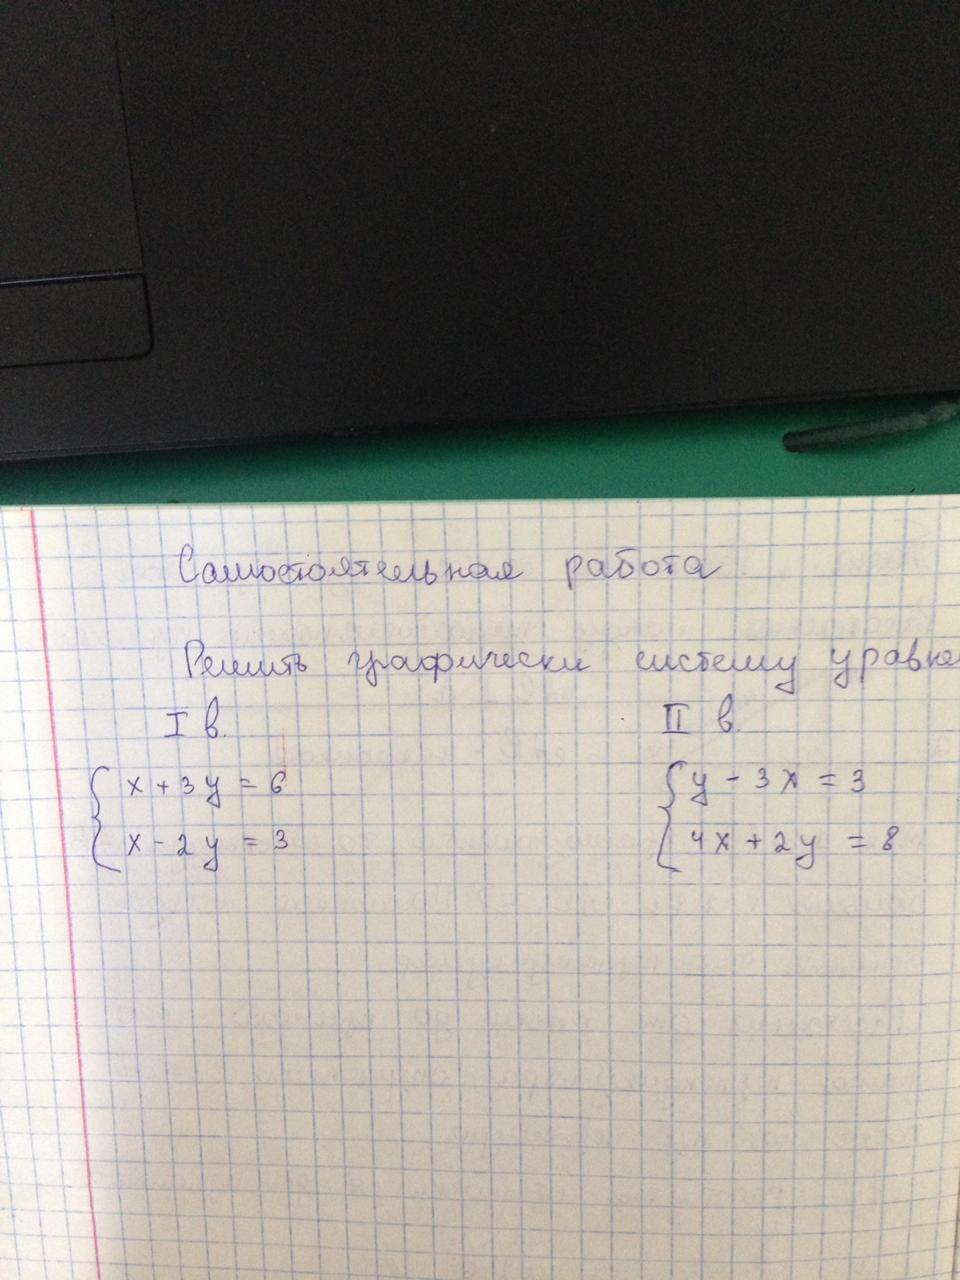 Самостоятельная работа
Решить графически систему уравне
I в. II в.
x + 3y = 6 y - 3x = 3
x - 2y = 3 4x + 2y = 8